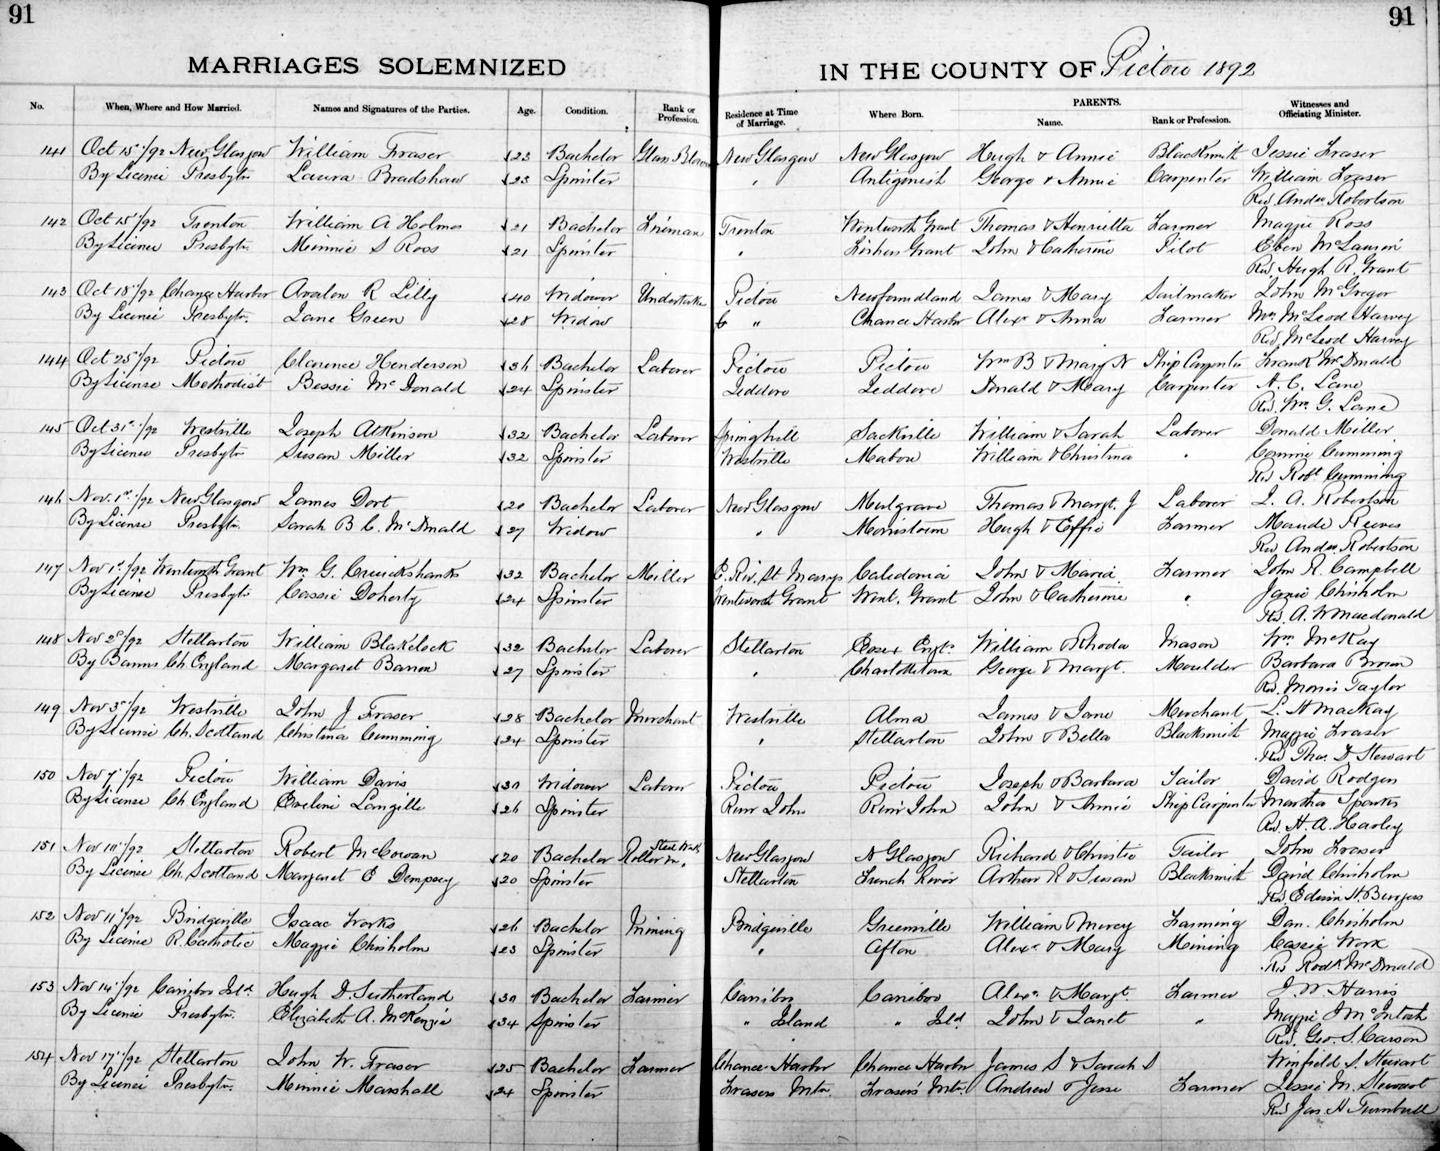 91
91
MARRIAGES SOLEMNIZED
IN THE COUNTY OF Pictou 1892
No. When, Where and How Married. Names and Signatures of the Parties. Age. Condition. Rank or Profession. Residence at Time of Marriage. Where Born. PARENTS. Name. Rank or Profession. Witnesses and Officiating Minister.
141 Oct 15/92 New Glasgow William Fraser 23 Bachelor Glass Blower New Glasgow New Glasgow Hugh & Annie Blacksmith Jessie Fraser
By License Presbytn Laura Bradshaw 23 Spinster " Antigonish George & Annie Carpenter William Fraser
Rev Andw Robertson
142 Oct 15/92 Trenton William A Holmes 21 Bachelor Fireman Trenton Wentworth Grant Thomas & Henrietta Farmer Maggie Ross
By License Presbytn Minnie S Ross 21 Spinster " Fishers Grant John & Catherine Pilot Eben McLaurin
Rev. Hugh R. Grant
143 Oct 18/92 Chance Harbor Avalon R Lilly 40 Widower Undertaker Pictou Newfoundland James & Mary Sailmaker John McGregor
By License Presbytn. Jane Green 28 Widow " Chance Harbor Alexr & Anna Farmer Wm McLeod Harvey
Rev. McLeod Harvey
144 Oct 25/92 Pictou Clarence Henderson 36 Bachelor Laborer Pictou Pictou Wm B & Mary N Ship Carpenter Frank McDonald
By License Methodist Bessie McDonald 24 Spinster Jeddore Jeddore Donald & Mary Carpenter A. C. Lane
Rev. Wm. G. Lane
145 Oct 31st/92 Westville Joseph Atkinson 32 Bachelor Laborer Springhill Sackville William & Sarah Laborer Donald Miller
By License Presbytn Susan Miller 32 Spinster Westville Mabou William & Christina " Connie Cumming
Rev Robt Cumming
146 Nov. 1st/92 New Glasgow James Dort 20 Bachelor Laborer New Glasgow Mulgrave Thomas & Margt. J Laborer J. A. Robertson
By License Presbytn. Sarah B. C. McDonald 27 Widow " Morristown Hugh & Effie Farmer Maude Reeves
Rev Andw Robertson
147 Nov 1st/92 Wentworth Grant Wm G. Cruickshanks 32 Bachelor Miller E. Riv. St Marys Caledonia John & Maria Farmer John R. Campbell
By License Presbytn Cassie Doherty 24 Spinster Wentworth Grant Went. Grant John & Catherine " Janie Chisholm
Rev. A. W Macdonald
148 Nov 2d/92 Stellarton William Blakelock 32 Bachelor Laborer Stellarton Essex Engd. William & Rhoda Mason Wm. McKay
By Banns Ch England Margaret Barron 27 Spinster " Charlottetown George & Margt. Moulder Barbara Brown
Rev. Morris Taylor
149 Nov 3d/92 Westville John J Fraser 28 Bachelor Merchant Westville Alma James & Jane Merchant L. H MacKay
By License Ch. Scotland Christina Cumming 24 Spinster " Stellarton John & Bella Blacksmith Maggie Fraser
Rev Thos. D Stewart
150 Nov 7/92 Pictou William Davis 30 Widower Laborer Pictou Pictou Joseph & Barbara Tailor David Rodgers
By License Ch England Eveline Langille 26 Spinster River John River John John & Annie Ship Carpenter Martha Sparks
Rev H. A. Harley
151 Nov 10/92 Stellarton Robert McCowan 20 Bachelor Roller in Steel Wks. New Glasgow N Glasgow Richard & Christie Tailor John Fraser
By License Ch. Scotland Margaret E Dempsey 20 Spinster Stellarton French River Arthur R & Susan Blacksmith David Chisholm
Rev Edwin H Burgess
152 Nov 11/92 Bridgeville Isaac Works 26 Bachelor Mining Bridgeville Greenville William & Mercy Farming Dan. Chisholm
By License R. Catholic Maggie Chisholm 23 Spinster " Afton Alexr & Mary Mining Cassie Work
Rev Rodk McDonald
153 Nov 14/92 Cariboo Isld. Hugh D. Sutherland 30 Bachelor Farmer Cariboo Cariboo Alexr. & Margt. Farmer J. W Harris
By License Presbytn. Elizabeth A. McKenzie 34 Spinster " Island " Isld. John & Janet " Maggie J McIntosh
Rev. Geo. S. Carson
154 Nov 17/92 Stellarton John W. Fraser 25 Bachelor Farmer Chance Harbor Chance Harbor James S & Sarah S Winfield S. Stewart
By License Presbytn. Minnie Marshall 24 Spinster Frasers Mtn. Fraser's Mtn. Andrew & Jessie Farmer Jessie M. Stewart
Rev Jas A Turnbull